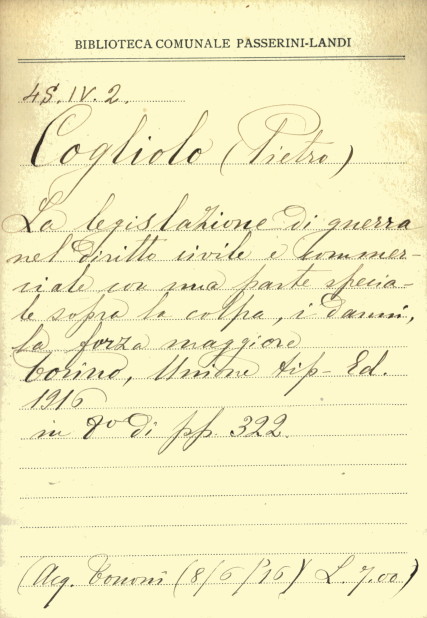 BIBLIOTECA COMUNALE PASSERINI-LANDI
4S.IV.2.
Cogliolo (Pietro)
La legislazione di guerra
nel diritto civile e commer-
ciale con una parte specia-
le sopra la colpa, i danni,
la forza maggiore
Torino, Unione tip-Ed.
1916
in 8º di pp. 322.
(Acq. Tononi (8/6/16) L. 7.00)